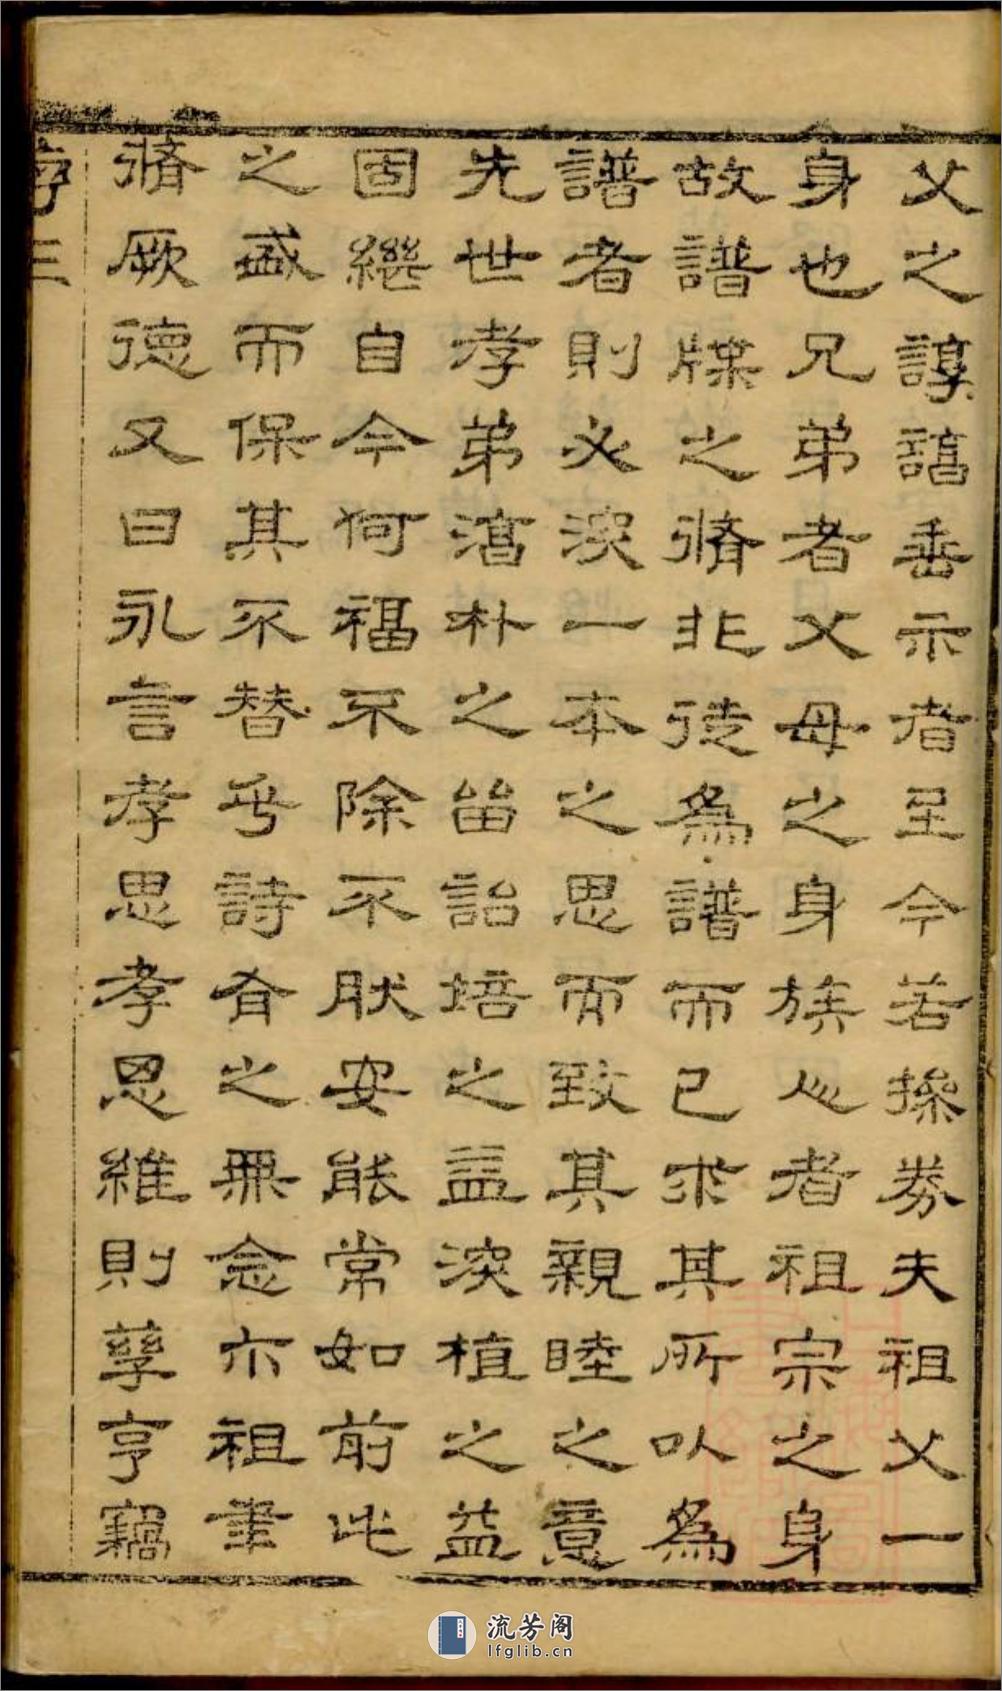 父之諄謞垂示者至今若操券夫祖父一
身也兄弟者父母之身族人者祖宗之身
故譜牒之脩非徒為譜而已求其所以為
譜者則必深一本之思而致其親睦之意
先世孝弟湻朴之畱詒培之益深植之益
固繼自今何福不除不然安能常如前此
之盛而保其不替乎詩有之無念尒祖聿
脩厥德又曰永言孝思孝思維則孳亨竊
序三
流芳阁
lfglib.cn